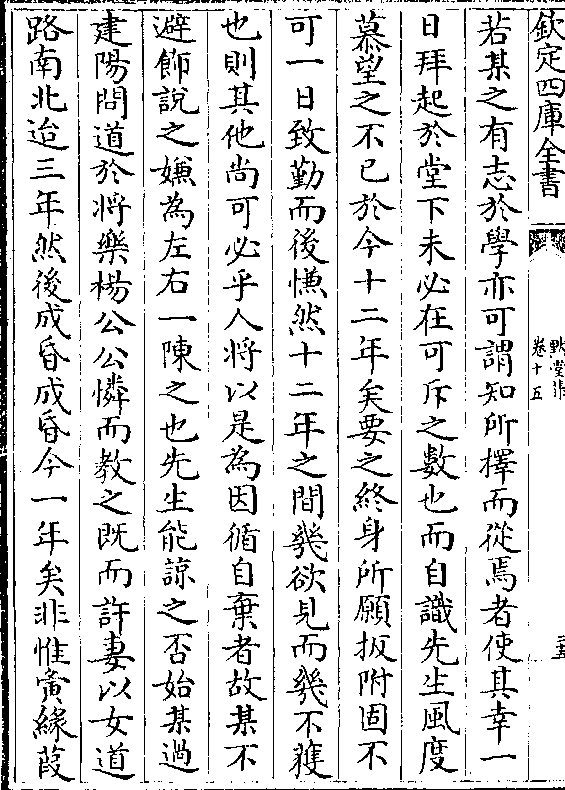 欽定四庫全書
默堂集
卷十五
若某之有志於學亦可謂知所擇而從焉者使其幸一
日拜起於堂下未必在可斥之數也而自識先生風度
慕望之不已於今十二年矣要之終身所願扳附固不
可一日致勤而後慊然十二年之間幾欲見而幾不獲
也則其他尚可必乎人將以是為因循自棄者故某不
避飾說之嫌為左右一陳之也先生能諒之否始某過
建陽問道於將樂楊公公憐而教之既而許妻以女道
路南北迨三年然後成昏成昏今一年矣非惟夤緣葭